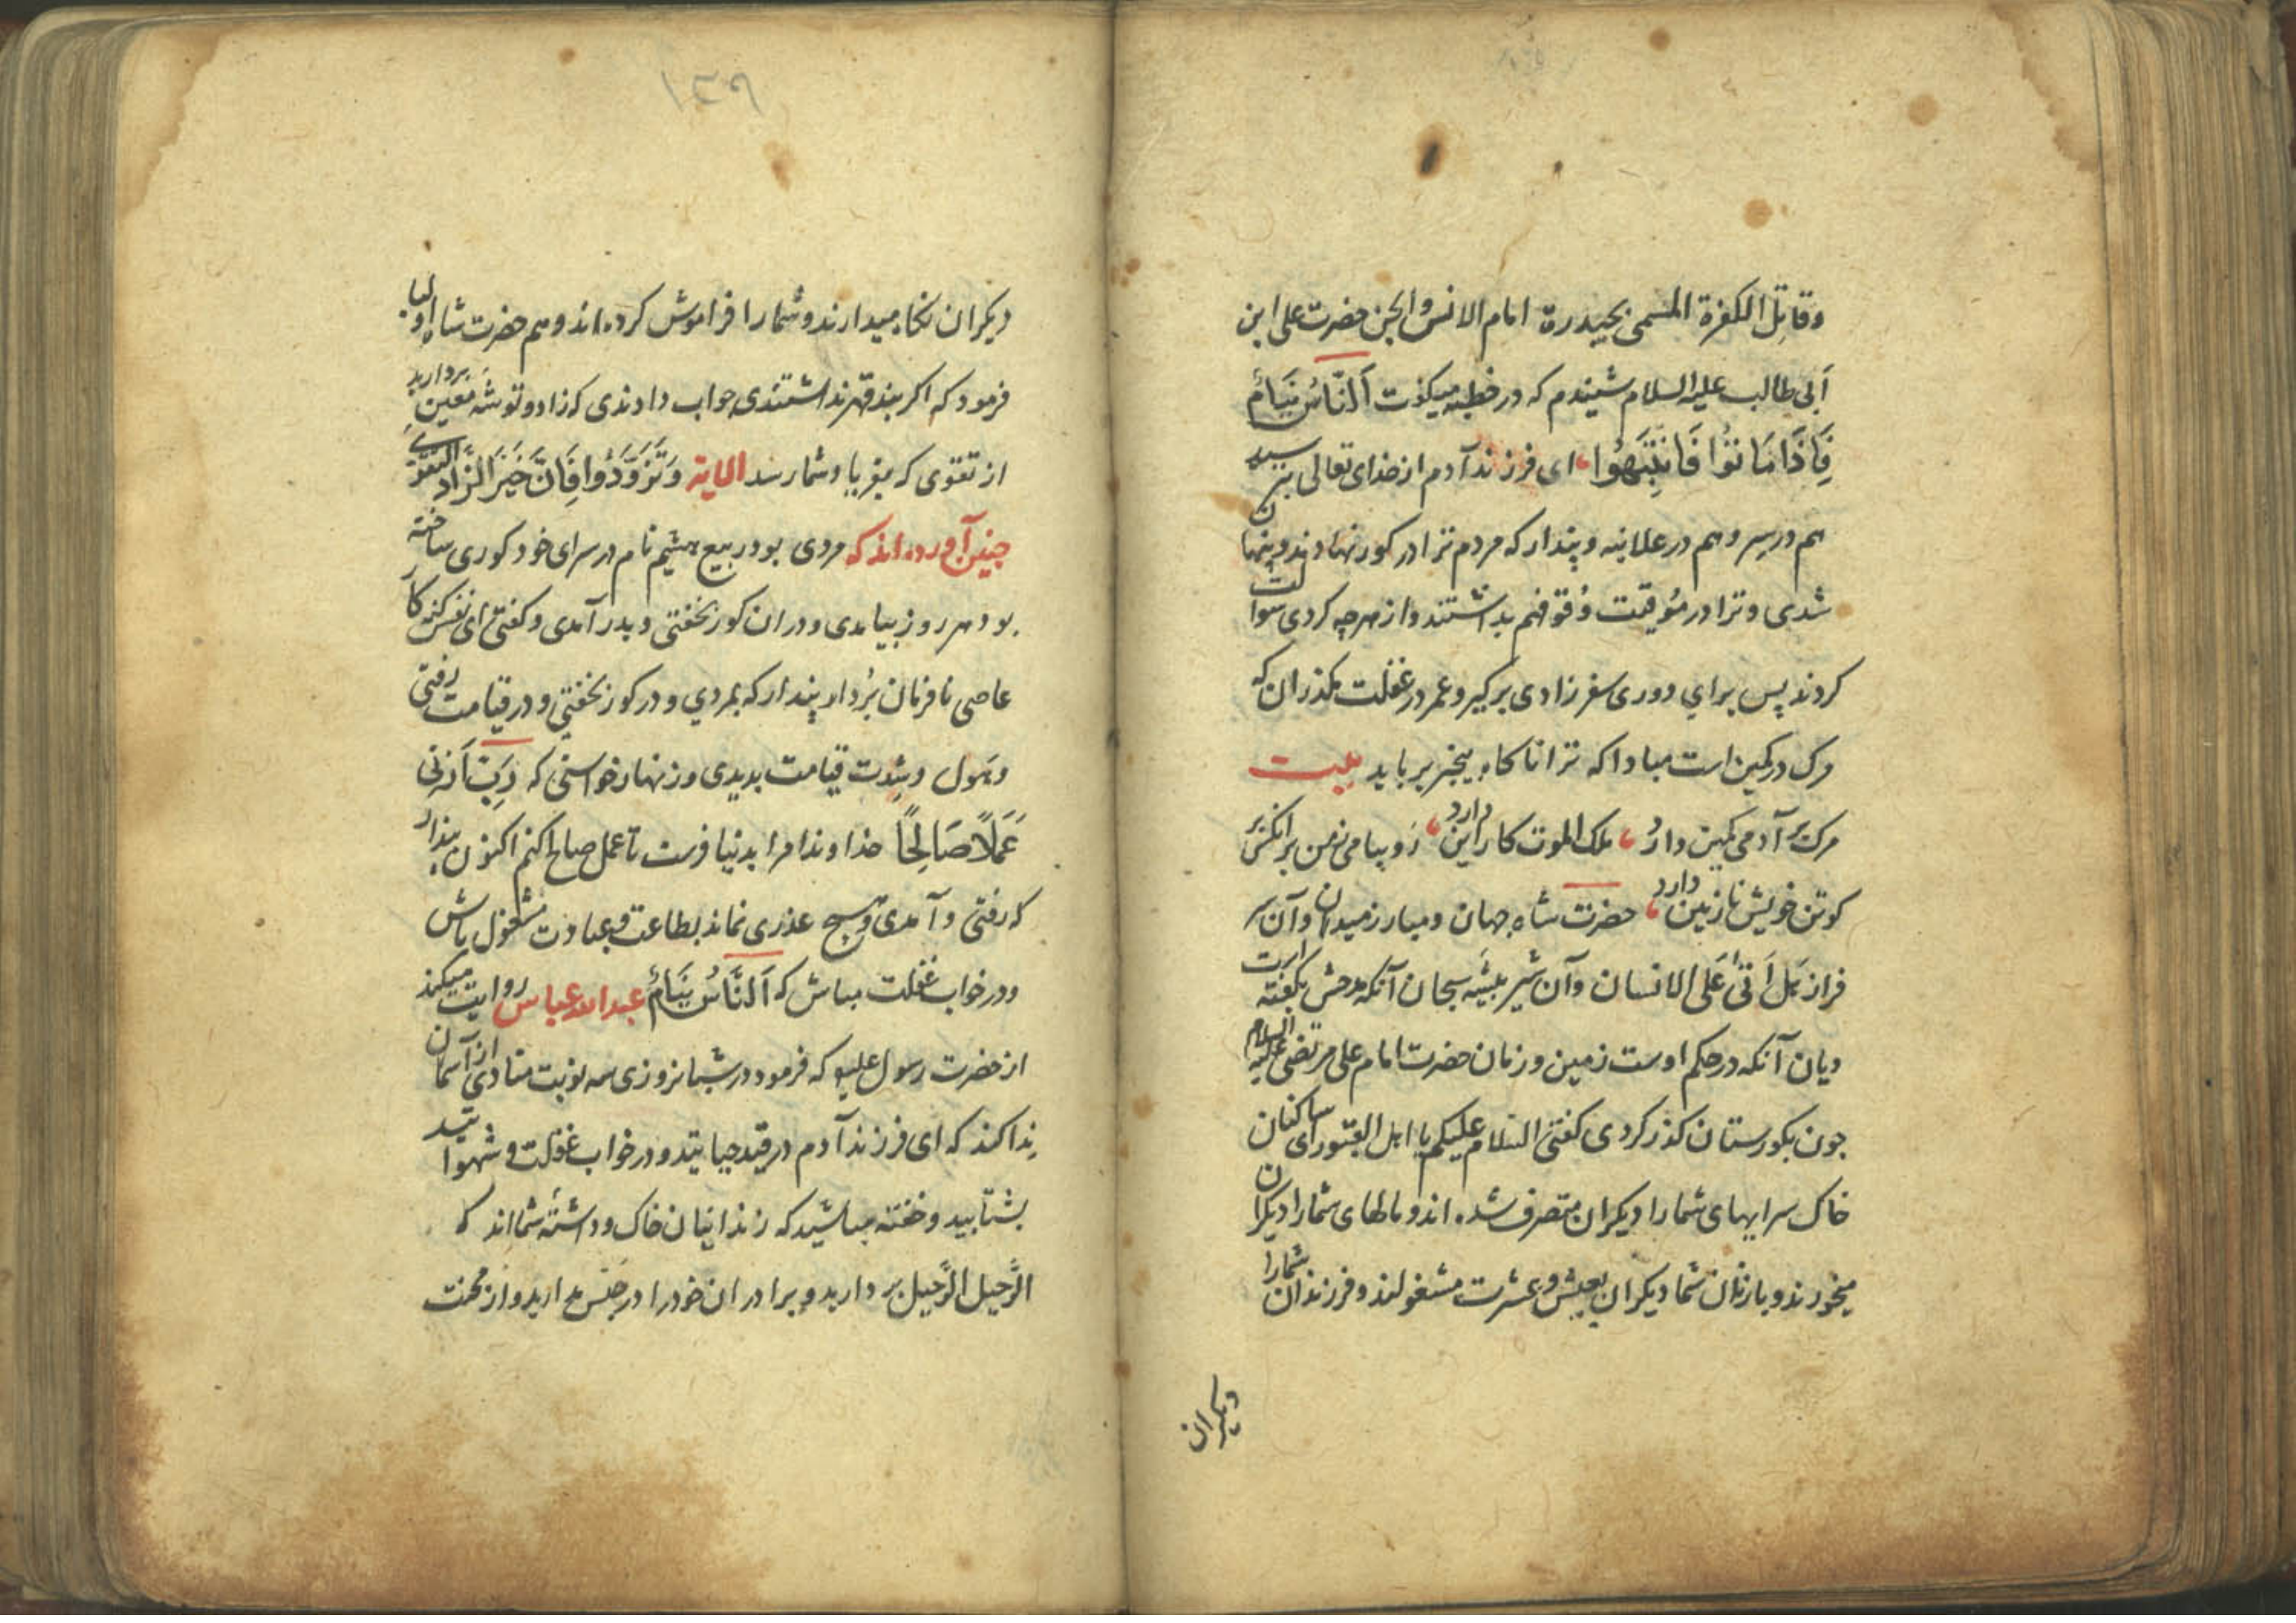 وقاتِل الکفرة المسمی بحیدرة امام الانس والجن حضرت علی ابن
اَبی طالب علیه السلام شنیدم که در خطبه میکفت اَلنّاسُ نِیَامٌ
فَاِذَا مَاتُوا فَانْتَبَهُوا ای فرزند آدم از خدای تعالی بترسید
هم در سِر و هم در علانیه و پندار که مردم ترا در کور نهادند و پنهان
شدی و ترا در مؤقیت وُقوفهم بداشتند و از هرچه کردی سوالت
کردند پس برای دوری سفر زادی برکیر و عمر در غفلت مکذران که
مرک در کمین است مبادا که ترا ناکاه بیخبر برباید بیت
مرک بر آدمی کمین دارد ملک الموت کار این دارد رَو پیامی ز من بر آنکس بر
کو تن خویش نازنین دارد حضرت شاه جهان و مبارز میدان و آن سر
فراز هَل اَتی عَلی الانسان و آن شیر بیشه سبحان آنکه مدحش بکفته است
دیان آنکه در حکم اوست زمین و زمان حضرت امام علی مرتضی علیه السلام
چون بکورستان کذر کردی کفتی السلام علیکم یا اهل القبور ای ساکنان
خاک سرایهای شما را دیکران متصرف شده اند و مالهای شما را دیکران
میخورند و با زنان شما دیکران بعیش و عشرت مشغولند و فرزندان شمارا
دیکران
١٣٩
دیکران نکاه میدارند و شما را فراموش کرده اند و هم حضرت شاه اولیا
فرمود که اکر بند قهر نداشتندی جواب دادندی که زاد و توشه مُعین بردارید
از تقوی که بفریاد شما رسد الایة وَتَزَوَّدُوا فَاِنَّ خَیْرَ الزَّادِ التقوی
چنین آورده اند که مردی بود ربیع هشیم نام در سرای خود کوری ساخته
بود هر روز بیامدی و در ان کور بخفتی و بدر آمدی و کفتی ای نفس کنه کار
عاصی نافرمان بُردار پندار که بمردی و در کور بخفتی و در قیامت رفتی
و هَول و شِدت قیامت بدیدی و زنهار خواستی که رَبِّ اَرنی
عَمَلاً صَالِحًا خداوندا مرا بدنیا فرست تا عمل صالح کنم اکنون پندار
که رفتی و آمدی و هیچ عذری نماند بطاعت و عبادت مشغول باش
و در خواب غفلت مباش که اَلنَّاسُ نِیَامٌ عبدالله عباس روایت میکند
از حضرت رسول علیه که فرمود در شبانروزی سه نوبت منادی از آسمان
ندا کند که ای فرزند آدم در قید حیاتید و در خواب غفلت و شهواتید
بشتابید و خفته مباشید که زندانیان خاک و داشته شما اند که
الرَّحیل الرَّحیل بردارید و برادران خود را در حَبس مدارید و از محنت